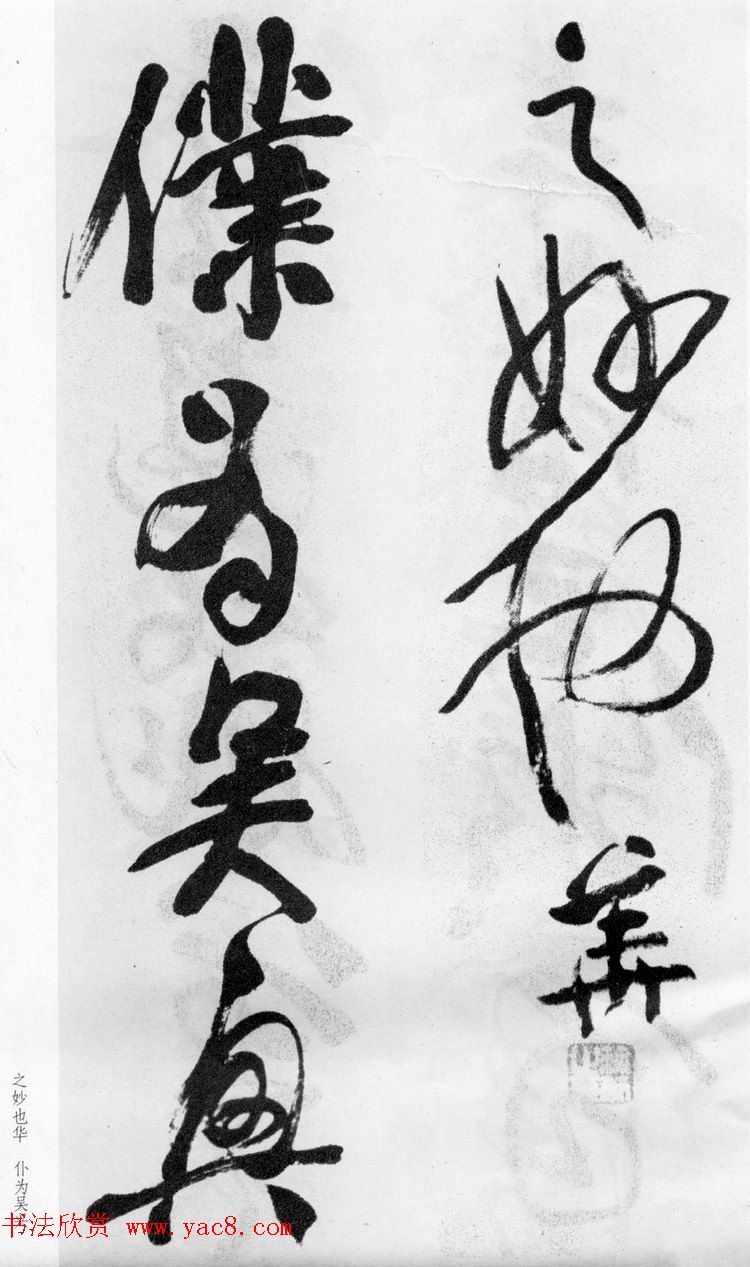 之妙也華
僕為吳興
之妙也华 仆为吴
书法欣赏 www.yac8.com